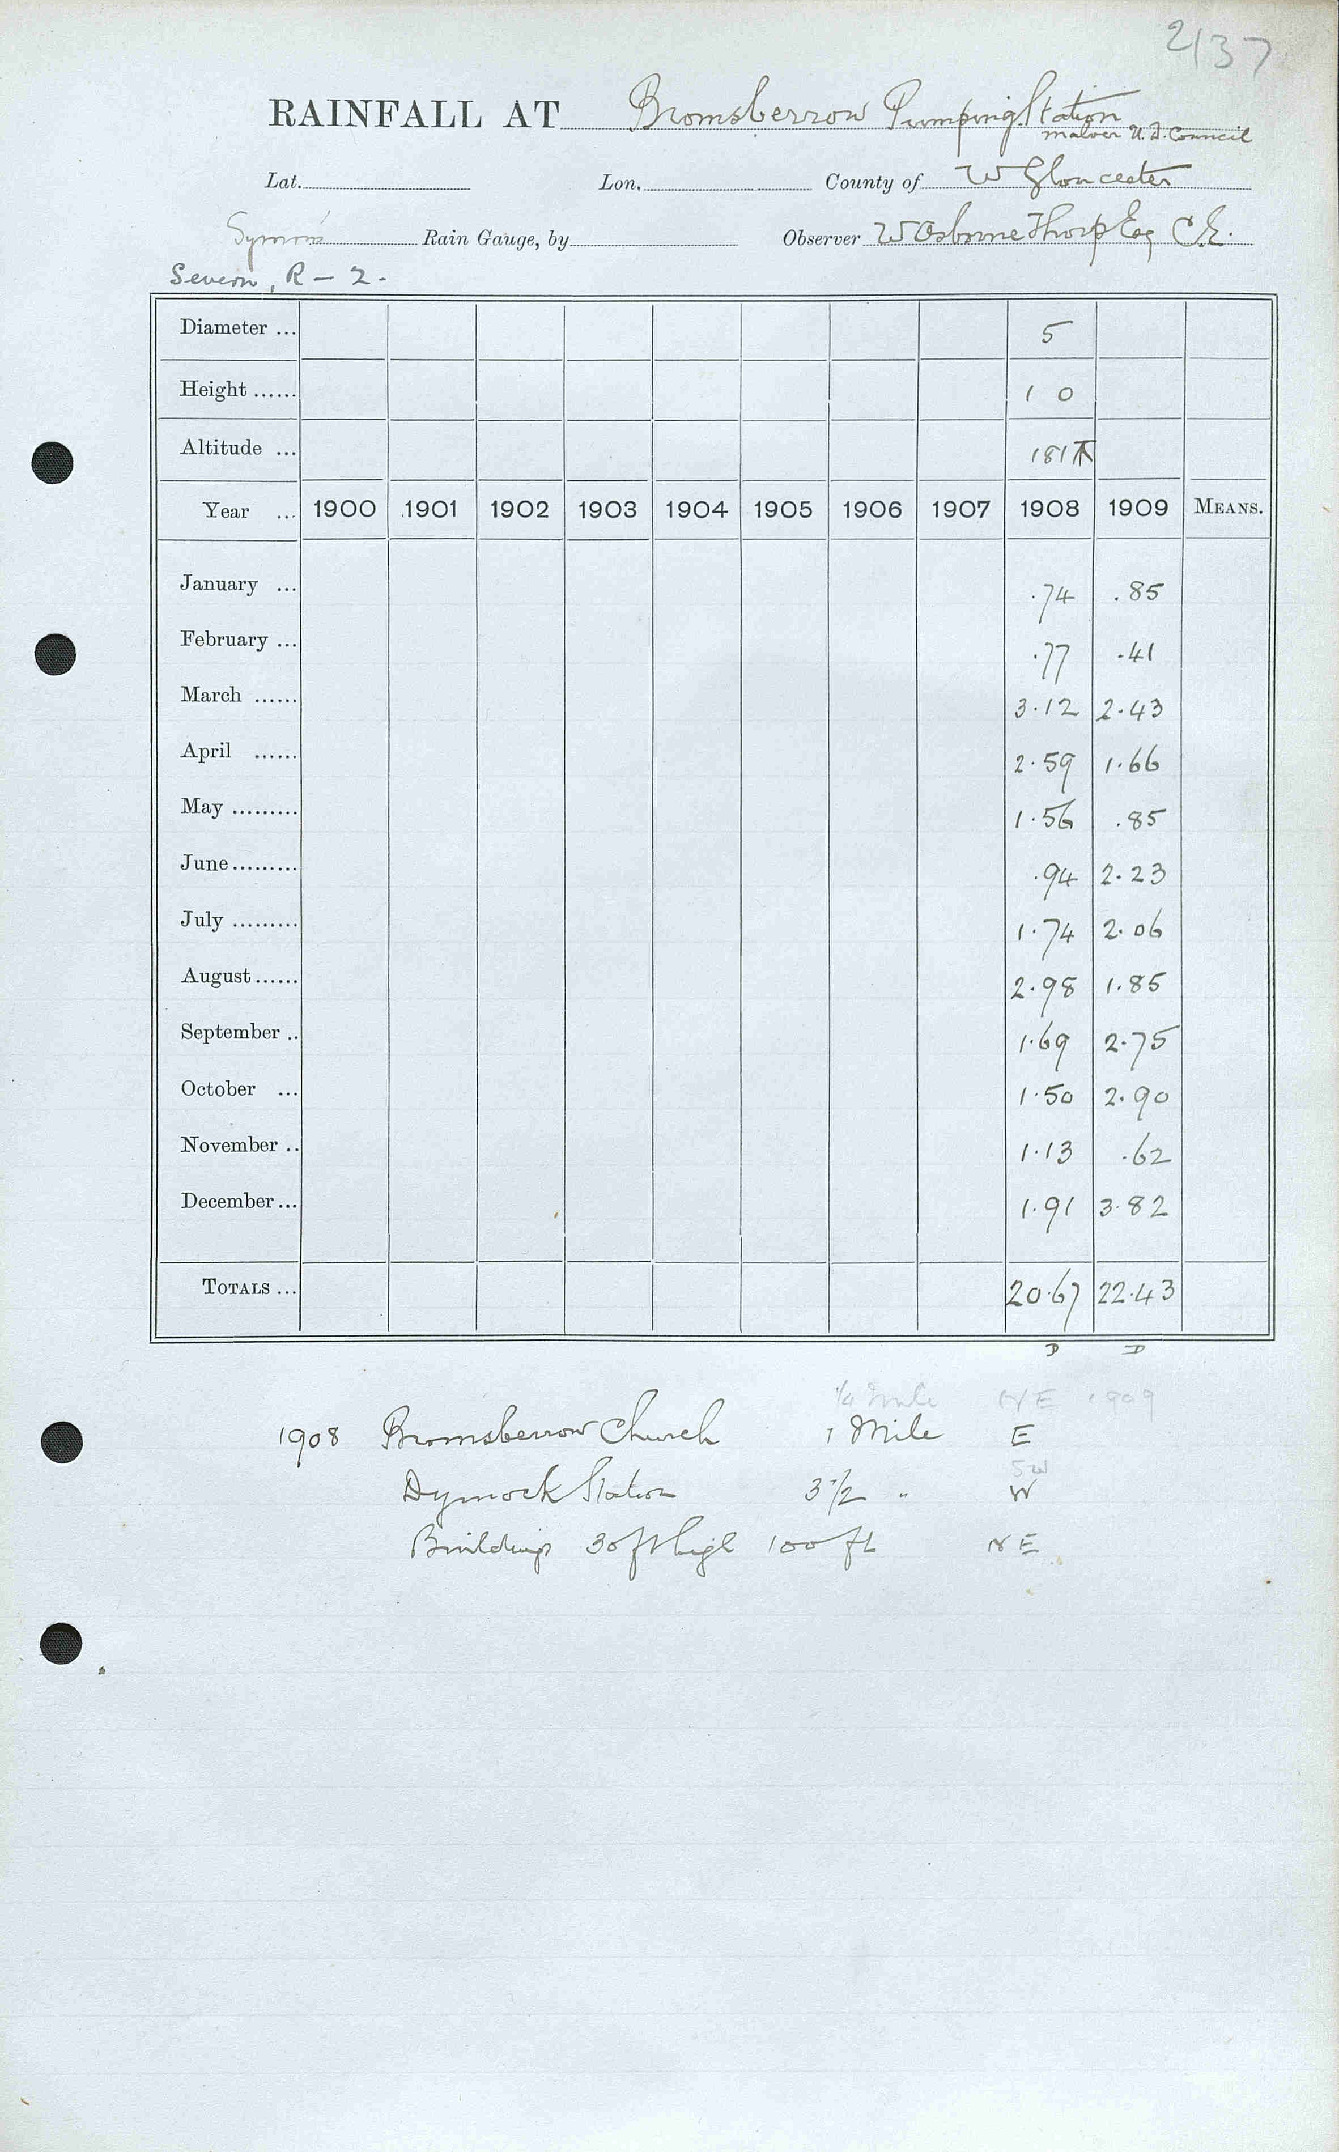 2137
RAINFALL AT Bromsberrow Pumping Station
Malvern U. D. Council
Lat. Lon. County of W Gloucester
Symons' Rain Gauge, by Observer W Osborne Thorp Esq C.E.
Severn, R – 2 .
Diameter ... 5
Height ...... 1 0
Altitude ... 181
Year ... 1900 1901 1902 1903 1904 1905 1906 1907 1908 1909 MEANS.
January ... .74 .85
February ... .77 .41
March ...... 3.12 2.43
April ...... 2.59 1.66
May ......... 1.56 .85
June......... .94 2.23
July ......... 1.74 2.06
August...... 2.98 1.85
September .. 1.69 2.75
October ... 1.50 2.90
November .. 1.13 .62
December... 1.91 3.82
TOTALS ... 20.67 22.43
D D
¼ Mile NE 1909
1908 Bromsberrow Church 1 Mile E
SW
Dymock Station 3½ " W
Buildings 30 ft high 100 ft NE